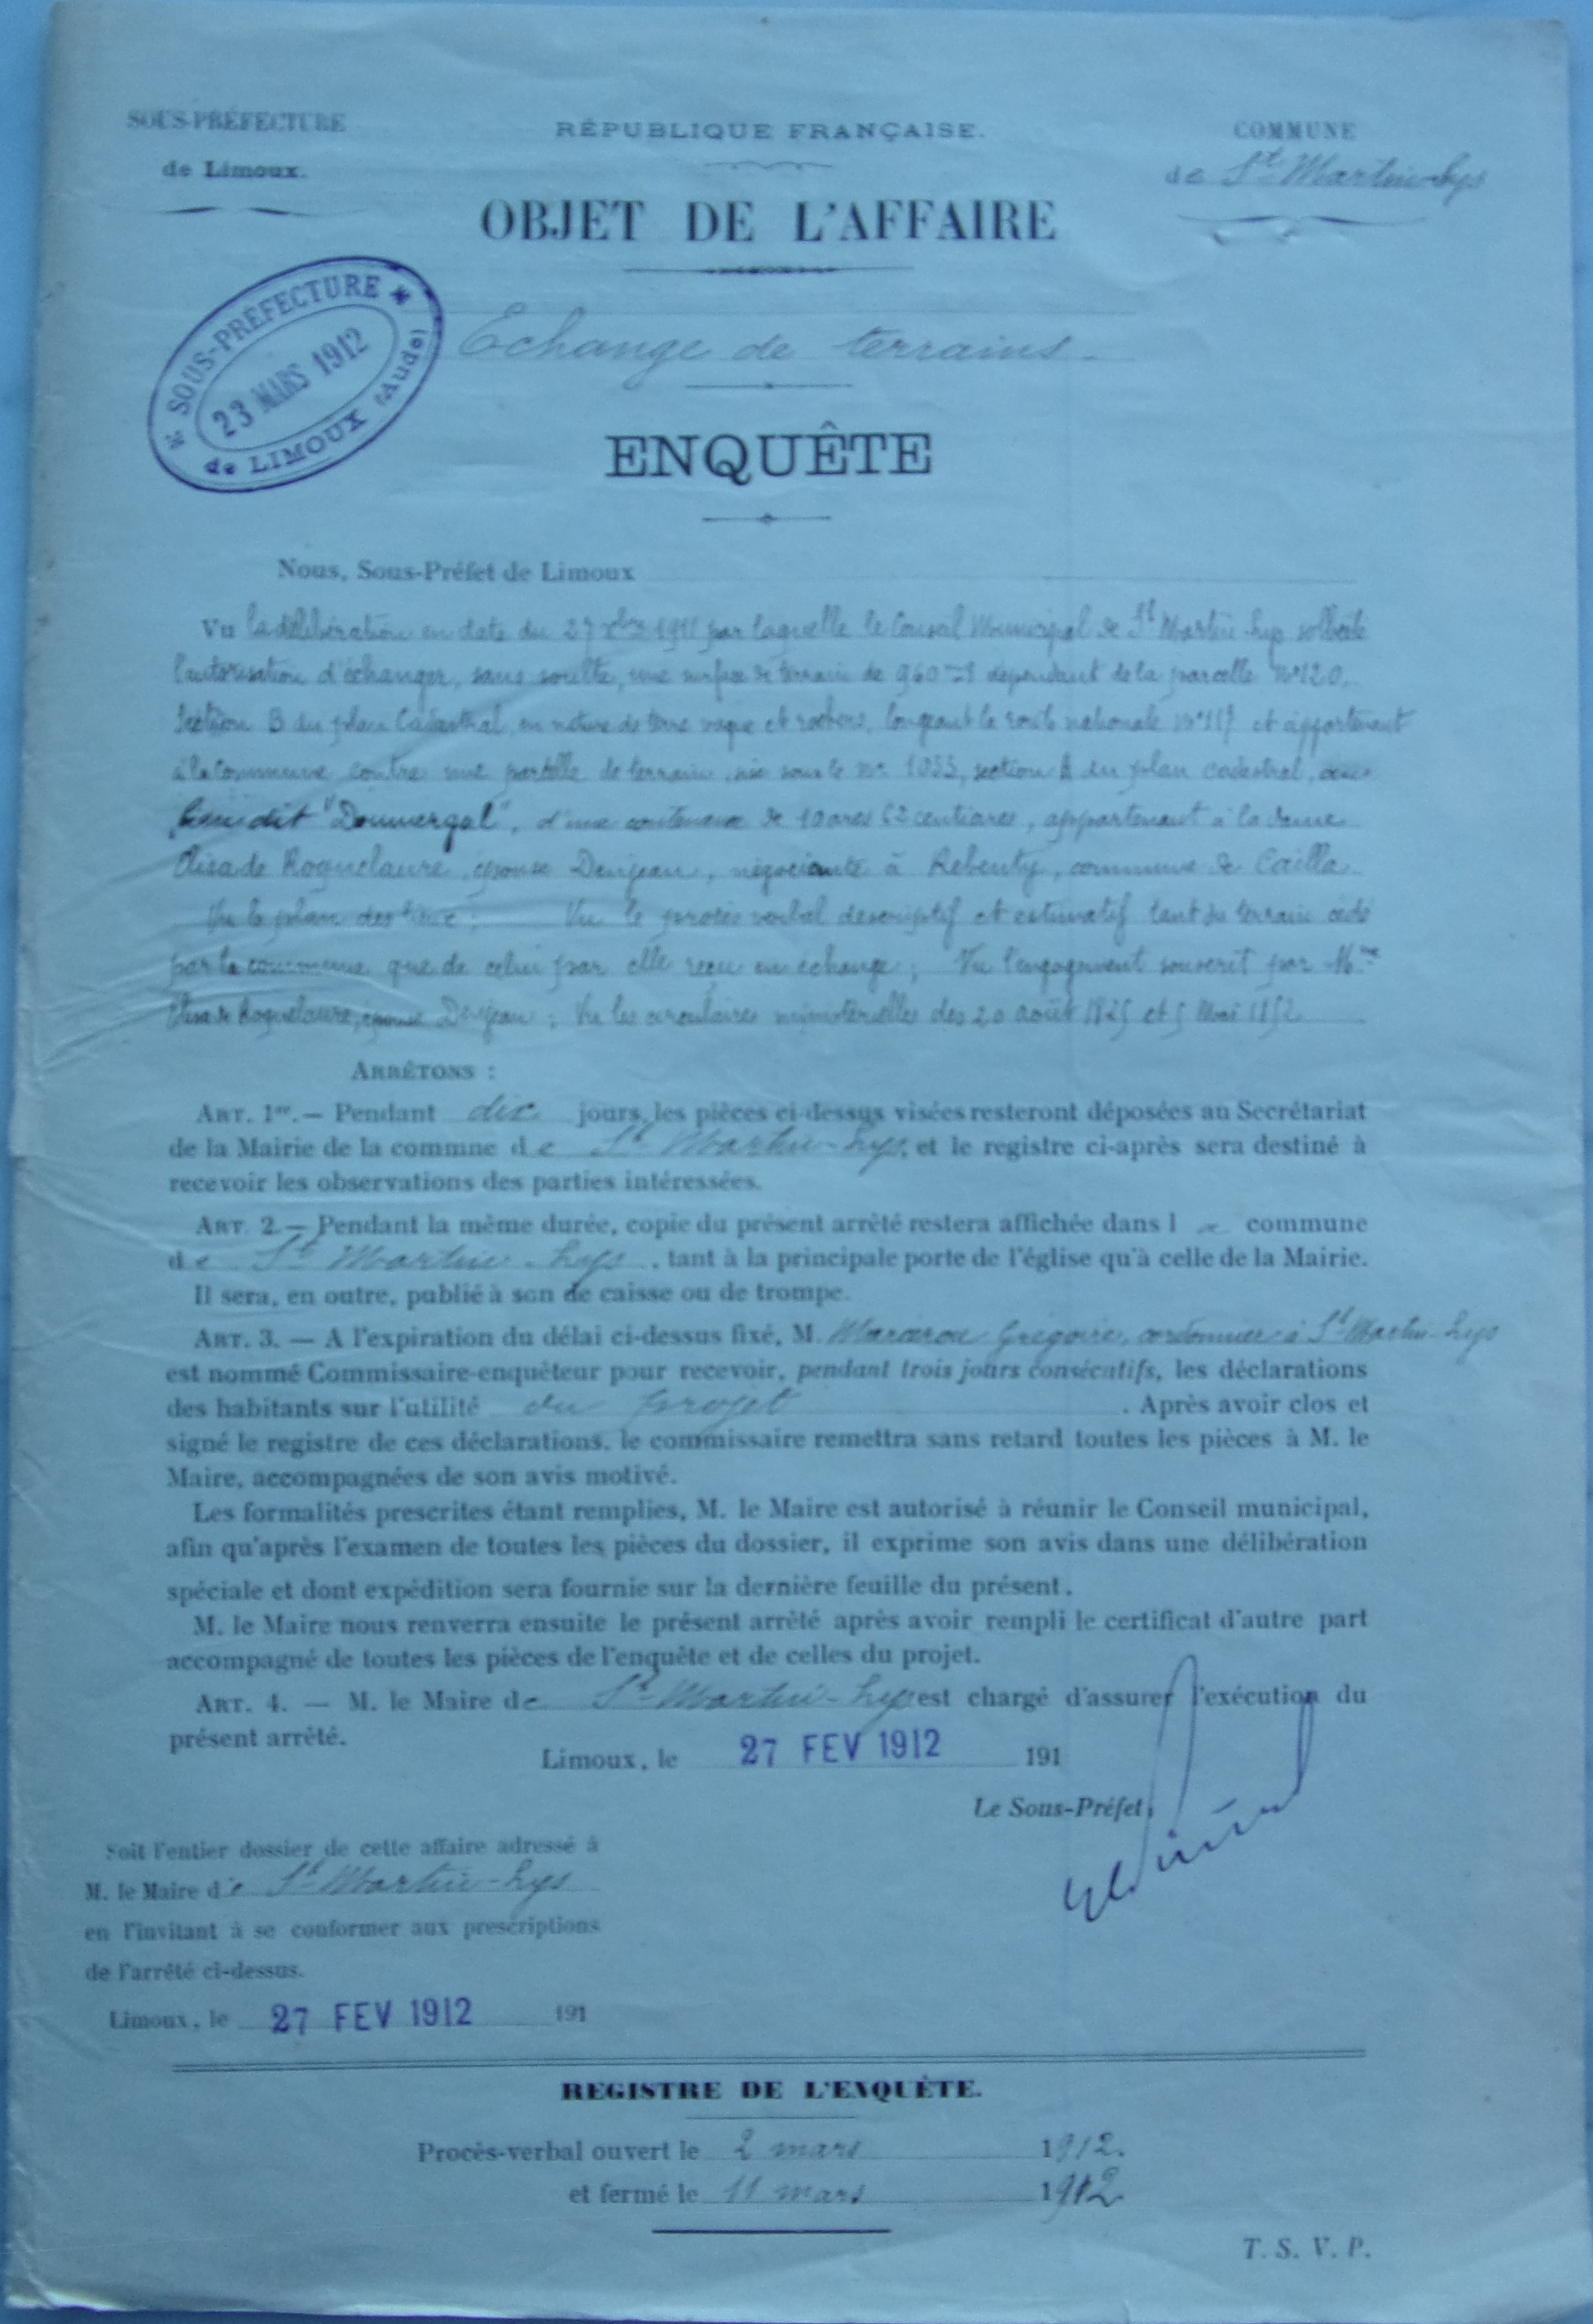 SOUS-PRÉFECTURE
de Limoux.
RÉPUBLIQUE FRANÇAISE.
COMMUNE
de St Martin-Lys
OBJET DE L'AFFAIRE
* SOUS-PRÉFECTURE *
23 MARS 1912
de LIMOUX (Aude)
Echange de terrains.
ENQUÊTE
Nous, Sous-Préfet de Limoux
Vu la délibération en date du 27 xbre 1911 par laquelle le Conseil Municipal de St Martin-Lys sollicite
l'autorisation d'échanger, sans soulte, une surface de terrain de 960 dépendant de la parcelle N° 120,
Section B du plan Cadastral, en nature de terre vague et rochers, longeant la route nationale n° 117 et appartenant
à la Commune contre une parcelle de terrain, sise sous le n° 1033, section A du plan cadastral, au
lieu dit "Doumergal", d'une contenance de 10 ares 62 centiares, appartenant à la dame
Elisa de Roquelaure, épouse Denjean, négociante à Rebenty, commune de Cailla.
Vu le plan des lieux; Vu le procès verbal descriptif et estimatif tant du terrain cédé
par la commune que de celui par elle reçu en échange; Vu l'engagement souscrit par Mme
Elisa de Roquelaure, épouse Denjean; Vu les circulaires ministérielles des 20 août 1825 et 5 Mai 1852
ARRÊTONS :
ART. 1er. — Pendant dix jours, les pièces ci-dessus visées resteront déposées au Secrétariat
de la Mairie de la commne de St Martin-Lys, et le registre ci-après sera destiné à
recevoir les observations des parties intéressées.
ART. 2. — Pendant la même durée, copie du présent arrêté restera affichée dans la commune
de St Martin-Lys, tant à la principale porte de l'église qu'à celle de la Mairie.
Il sera, en outre, publié à son de caisse ou de trompe.
ART. 3. — A l'expiration du délai ci-dessus fixé, M. Grégoire, cordonnier à St Martin-Lys
est nommé Commissaire-enquêteur pour recevoir, pendant trois jours consécutifs, les déclarations
des habitants sur l'utilité du projet . Après avoir clos et
signé le registre de ces déclarations, le commissaire remettra sans retard toutes les pièces à M. le
Maire, accompagnées de son avis motivé.
Les formalités prescrites étant remplies, M. le Maire est autorisé à réunir le Conseil municipal,
afin qu'après l'examen de toutes les pièces du dossier, il exprime son avis dans une délibération
spéciale et dont expédition sera fournie sur la dernière feuille du présent.
M. le Maire nous renverra ensuite le présent arrêté après avoir rempli le certificat d'autre part
accompagné de toutes les pièces de l'enquête et de celles du projet.
ART. 4. — M. le Maire de St Martin-Lys est chargé d'assurer l'exécution du
présent arrêté.
Limoux, le 27 FEV 1912 191
Le Sous-Préfet,
Soit l'entier dossier de cette affaire adressé à
M. le Maire de St Martin-Lys
en l'invitant à se conformer aux prescriptions
de l'arrêté ci-dessus.
Limoux, le 27 FEV 1912 191
REGISTRE DE L'ENQUÊTE.
Procès-verbal ouvert le 2 mars 1912.
et fermé le 11 mars 1912.
T. S. V. P.